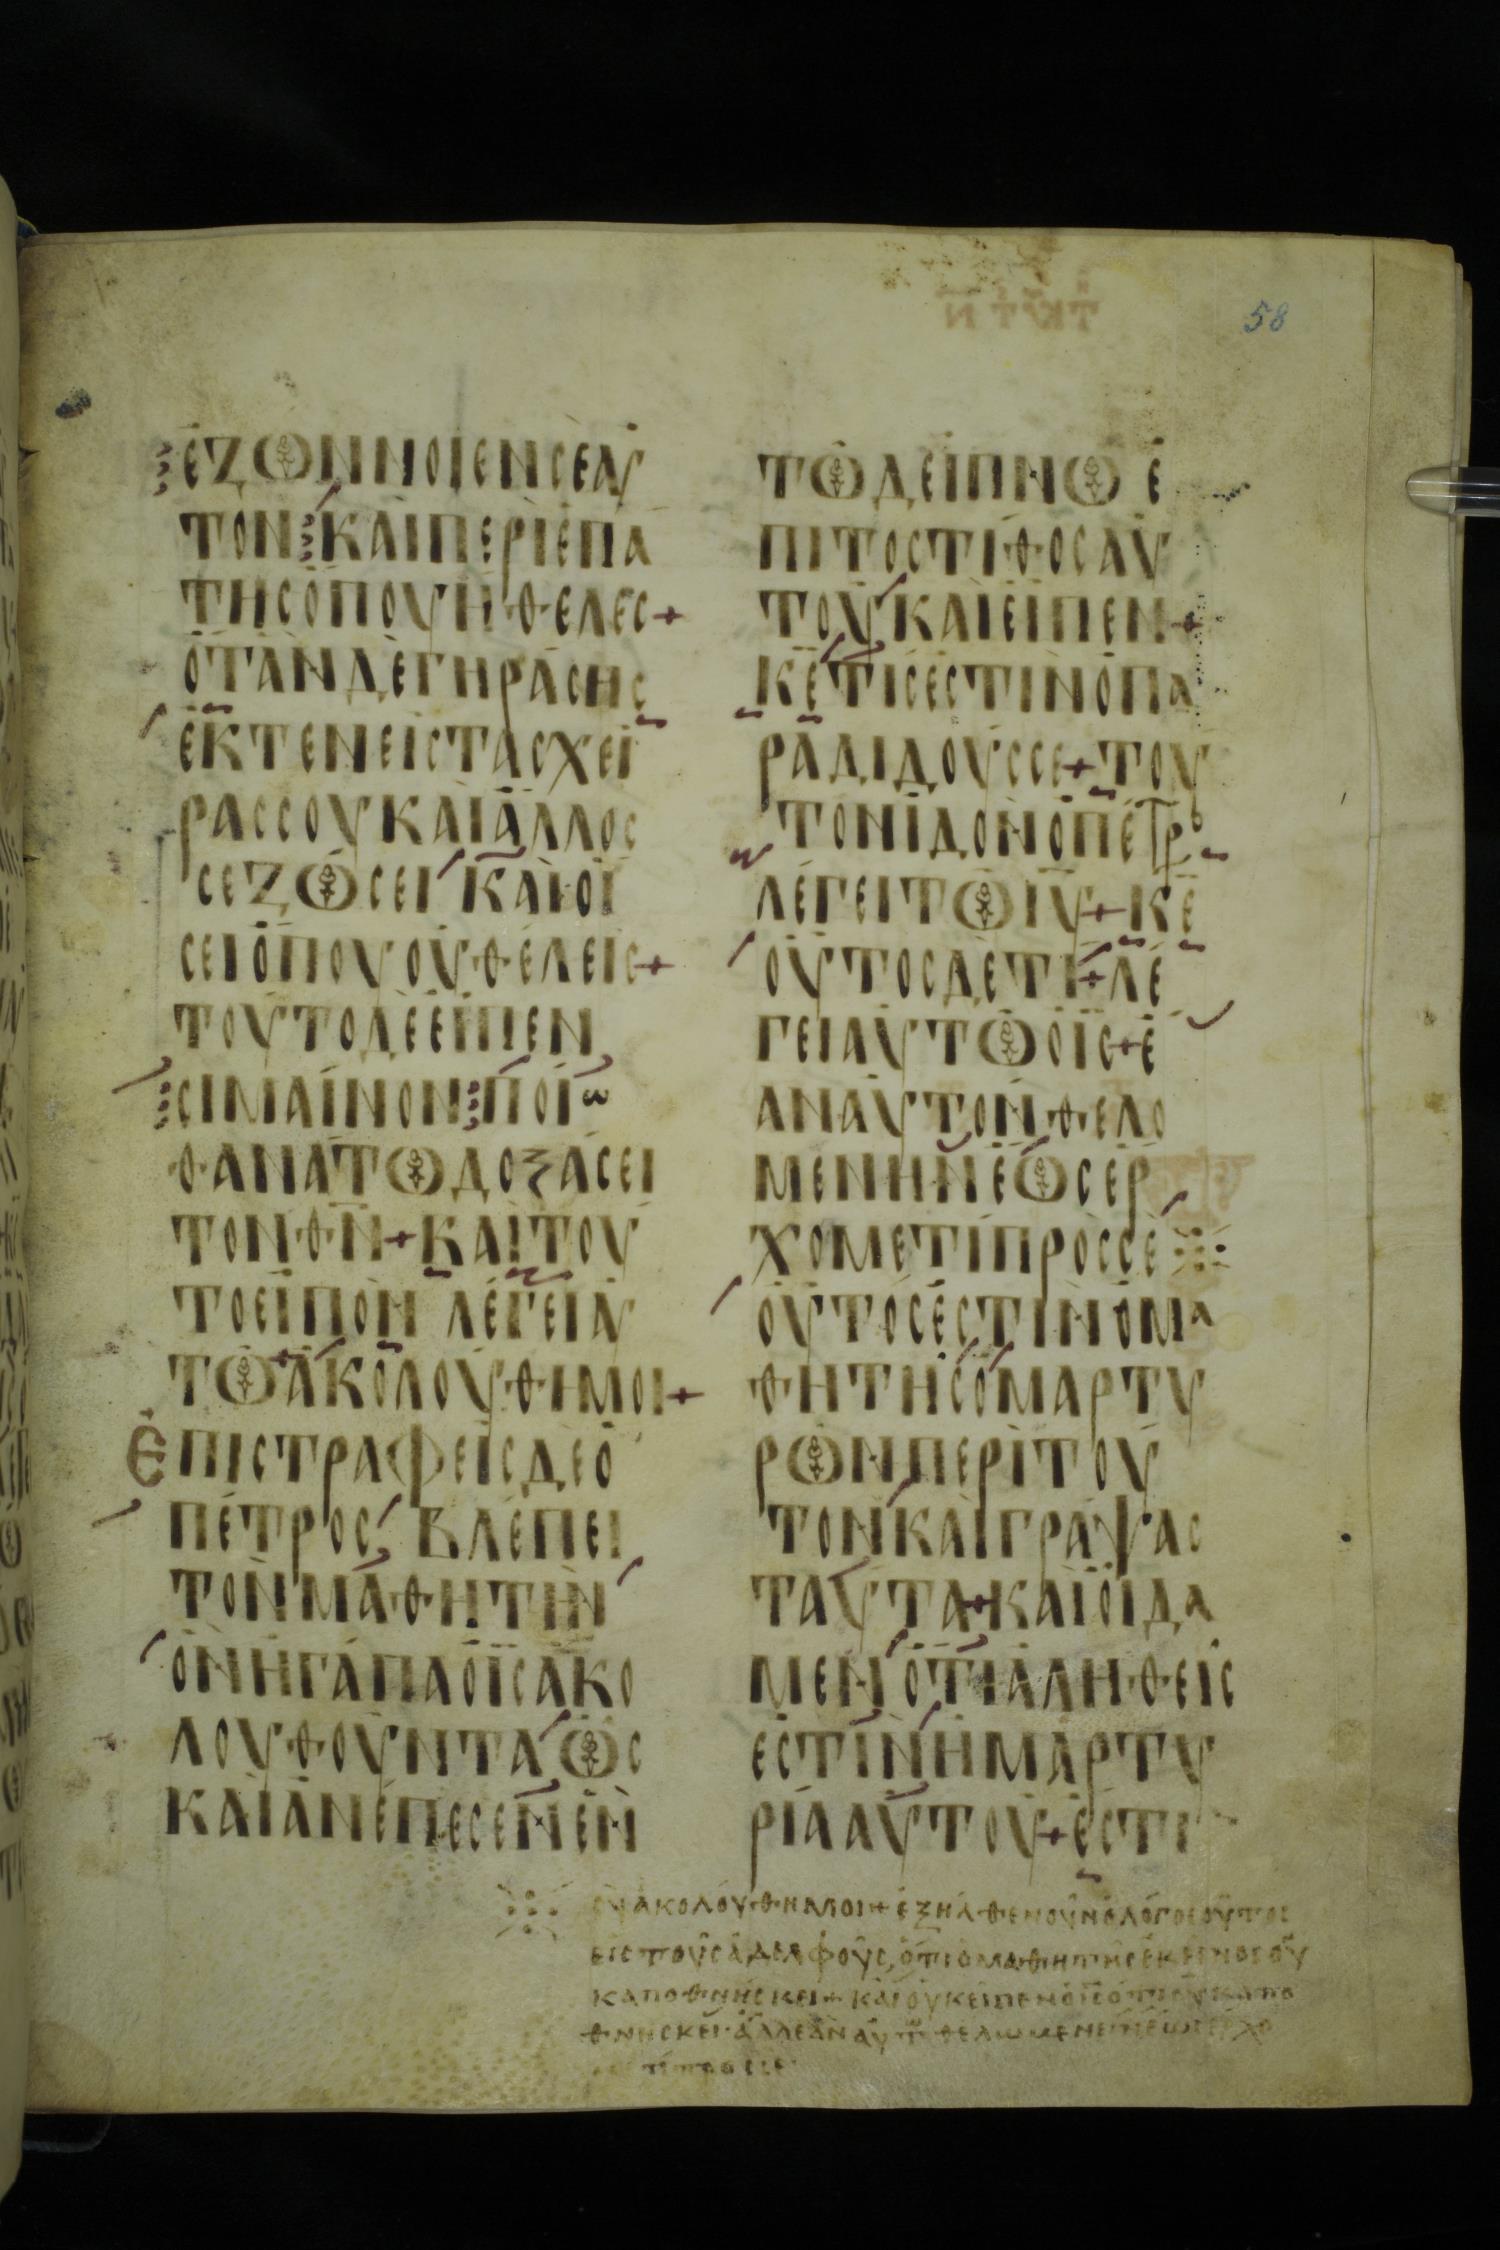 58
ἐΖωΝΝΟΙΕΝϹΕΑΥ
ΤΟΝ ΚΑΙΠΕΡΙΕΠΑ
ΤΗϹΟΠΟΥΗΘΕΛΕϹ+
ΟΤΑΝΔΕΓΗΡΑϹΗϹ
ΕΚΤΕΝΕΙϹΤΑϹΧΕΙ
ΡΑϹϹΟΥΚΑΙΑΛΛΟϹ
ϹΕΖωϹΕΙ ΚΑΙΟΙ
ϹΕΙΟΠΟΥΟΥΘΕΛΕΙϹ+
ΤΟΥΤΟΔΕΕΙΠΕΝ
ϹΙΜΑΙΝΟΝ ΠΟΙω
ΘΑΝΑΤωΔΟΞΑϹΕΙ
ΤΟΝΘΝ+ΚΑΙΤΟΥ
ΤΟΕΙΠΟΝ ΛΕΓΕΙΑΥ
Τω+ΑΚΟΛΟΥΘΗΜΟΙ+
ΕΠΙϹΤΡΑΦΕΙϹΔΕΟ
ΠΕΤΡΟϹ, ΒΛΕΠΕΙ
ΤΟΝΜΑΘΗΤΗΝ
ΟΝΗΓΑΠΑΟΙϹΑΚΟ
ΛΟΥΘΟΥΝΤΑ ωϹ
ΚΑΙΑΝΕΠΕϹΕΝΕΝ
ΤωΔΕΙΠΝω Ε
ΠΙΤΟϹΤΙΘΟϹΑΥ
ΤΟΥ ΚΑΙΕΙΠΕΝ+
ΚΕΤΙϹΕϹΤΙΝΟΠΑ
ΡΑΔΙΔΟΥϹϹΕ+ΤΟΥ
ΤΟΝΙΔΟΝΟΠΕΤΡο
ΛΕΓΕΙΤωΙΥ+ΚΕ
ΟΥΤΟϹΔΕΤΙ+ΛΕ
ΓΕΙΑΥΤωΟΙϹ+Ε
ΑΝΑΥΤΟΝΘΕΛΟ
ΜΕΝΗΝΕωϹΕΡ
ΧΟΜΕΤΙΠΡΟϹϹΕ
ΟΥΤΟϹΕϹΤΙΝΟΜΑ
ΘΗΤΗϹΟΜΑΡΤΥ
ΡωΝΠΕΡΙΤΟΥ
ΤΟΝΚΑΙΓΡΑΨΑϹ
ΤΑΥΤΑ+ΚΑΙΟΙΔΑ
ΜΕΝ ΟΤΙΑΛΗΘΕΙϹ
ΕϹΤΙΝΗΜΑΡΤΥ
ΡΙΑΑΥΤΟΥ+ΕϹΤΙ
ϹΥΑΚΟΛΟΥΘΗΜΟΙ+ΕΞΗΛΘΕΝΟΥΝΟΛΟΓΟϹΟΥΤΟϹ
ΕΙϹΤΟΥϹΑΔΕΛΦΟΥϹ, ΟΤΙΟΜΑΘΗΤΗϹΕΚΕΙΝΟϹΟΥ
ΚΑΠΟΘΝΗϹΚΕΙ+ΚΑΙΟΥΚΕΙΠΕΝΟΙϹΟΤΙΟΥΚΑΠΟ
ΘΝΗϹΚΕΙ·ΑΛΛΕΑΝΑΥΤΟΝΘΕΛωΜΕΝΕΙΝΕωϹΕΡΧΟ
ΤΙΠΡΟϹϹΕ